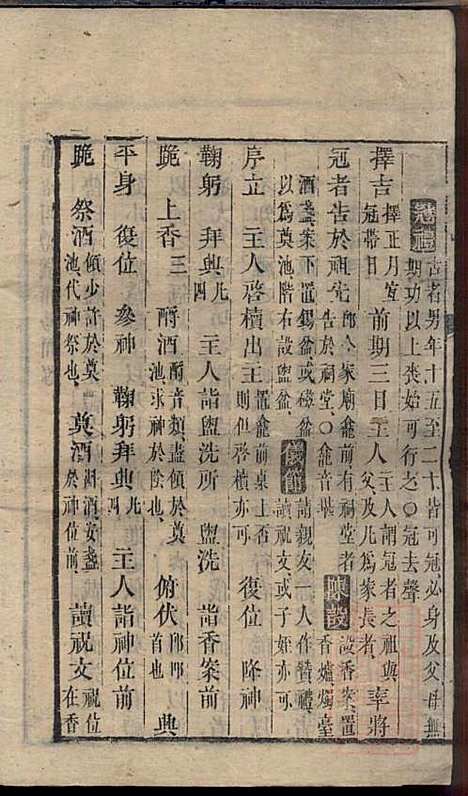 冠禮 古者男年十五至二十皆可冠必身及父母無
期功以上喪始可行之〇冠去聲
擇吉 擇正月宜
冠帶日 前期三日主人 主人謂冠者之祖與
父及凡為家長者 率將
冠者告於祖先 即今家廟龕前有祠堂者
告於祠堂〇龕音堪 陳設 設香案置
香爐燭臺
酒盞案下置錫盆或磁盆
以為奠池階右設盥盆 儀節 請親友一人作贊禮
讀祝文或子姪亦可
序立 主人啓櫝出主 置龕前桌上否
則但啓櫝亦可 復位 降神
鞠躬 拜興 凡
四 主人詣盥洗所 盥洗 詣香案前
跪 上香 三 酹酒 酹音類盡傾於奠
池求神於陰也 俯伏 即叩
首也 興
平身 復位 參神 鞠躬拜興 凡
四 主人詣神位前
跪 祭酒 傾少許於奠
池代神祭也 奠酒 斟酒安盞
於神位前 讀祝文 祝位
在香